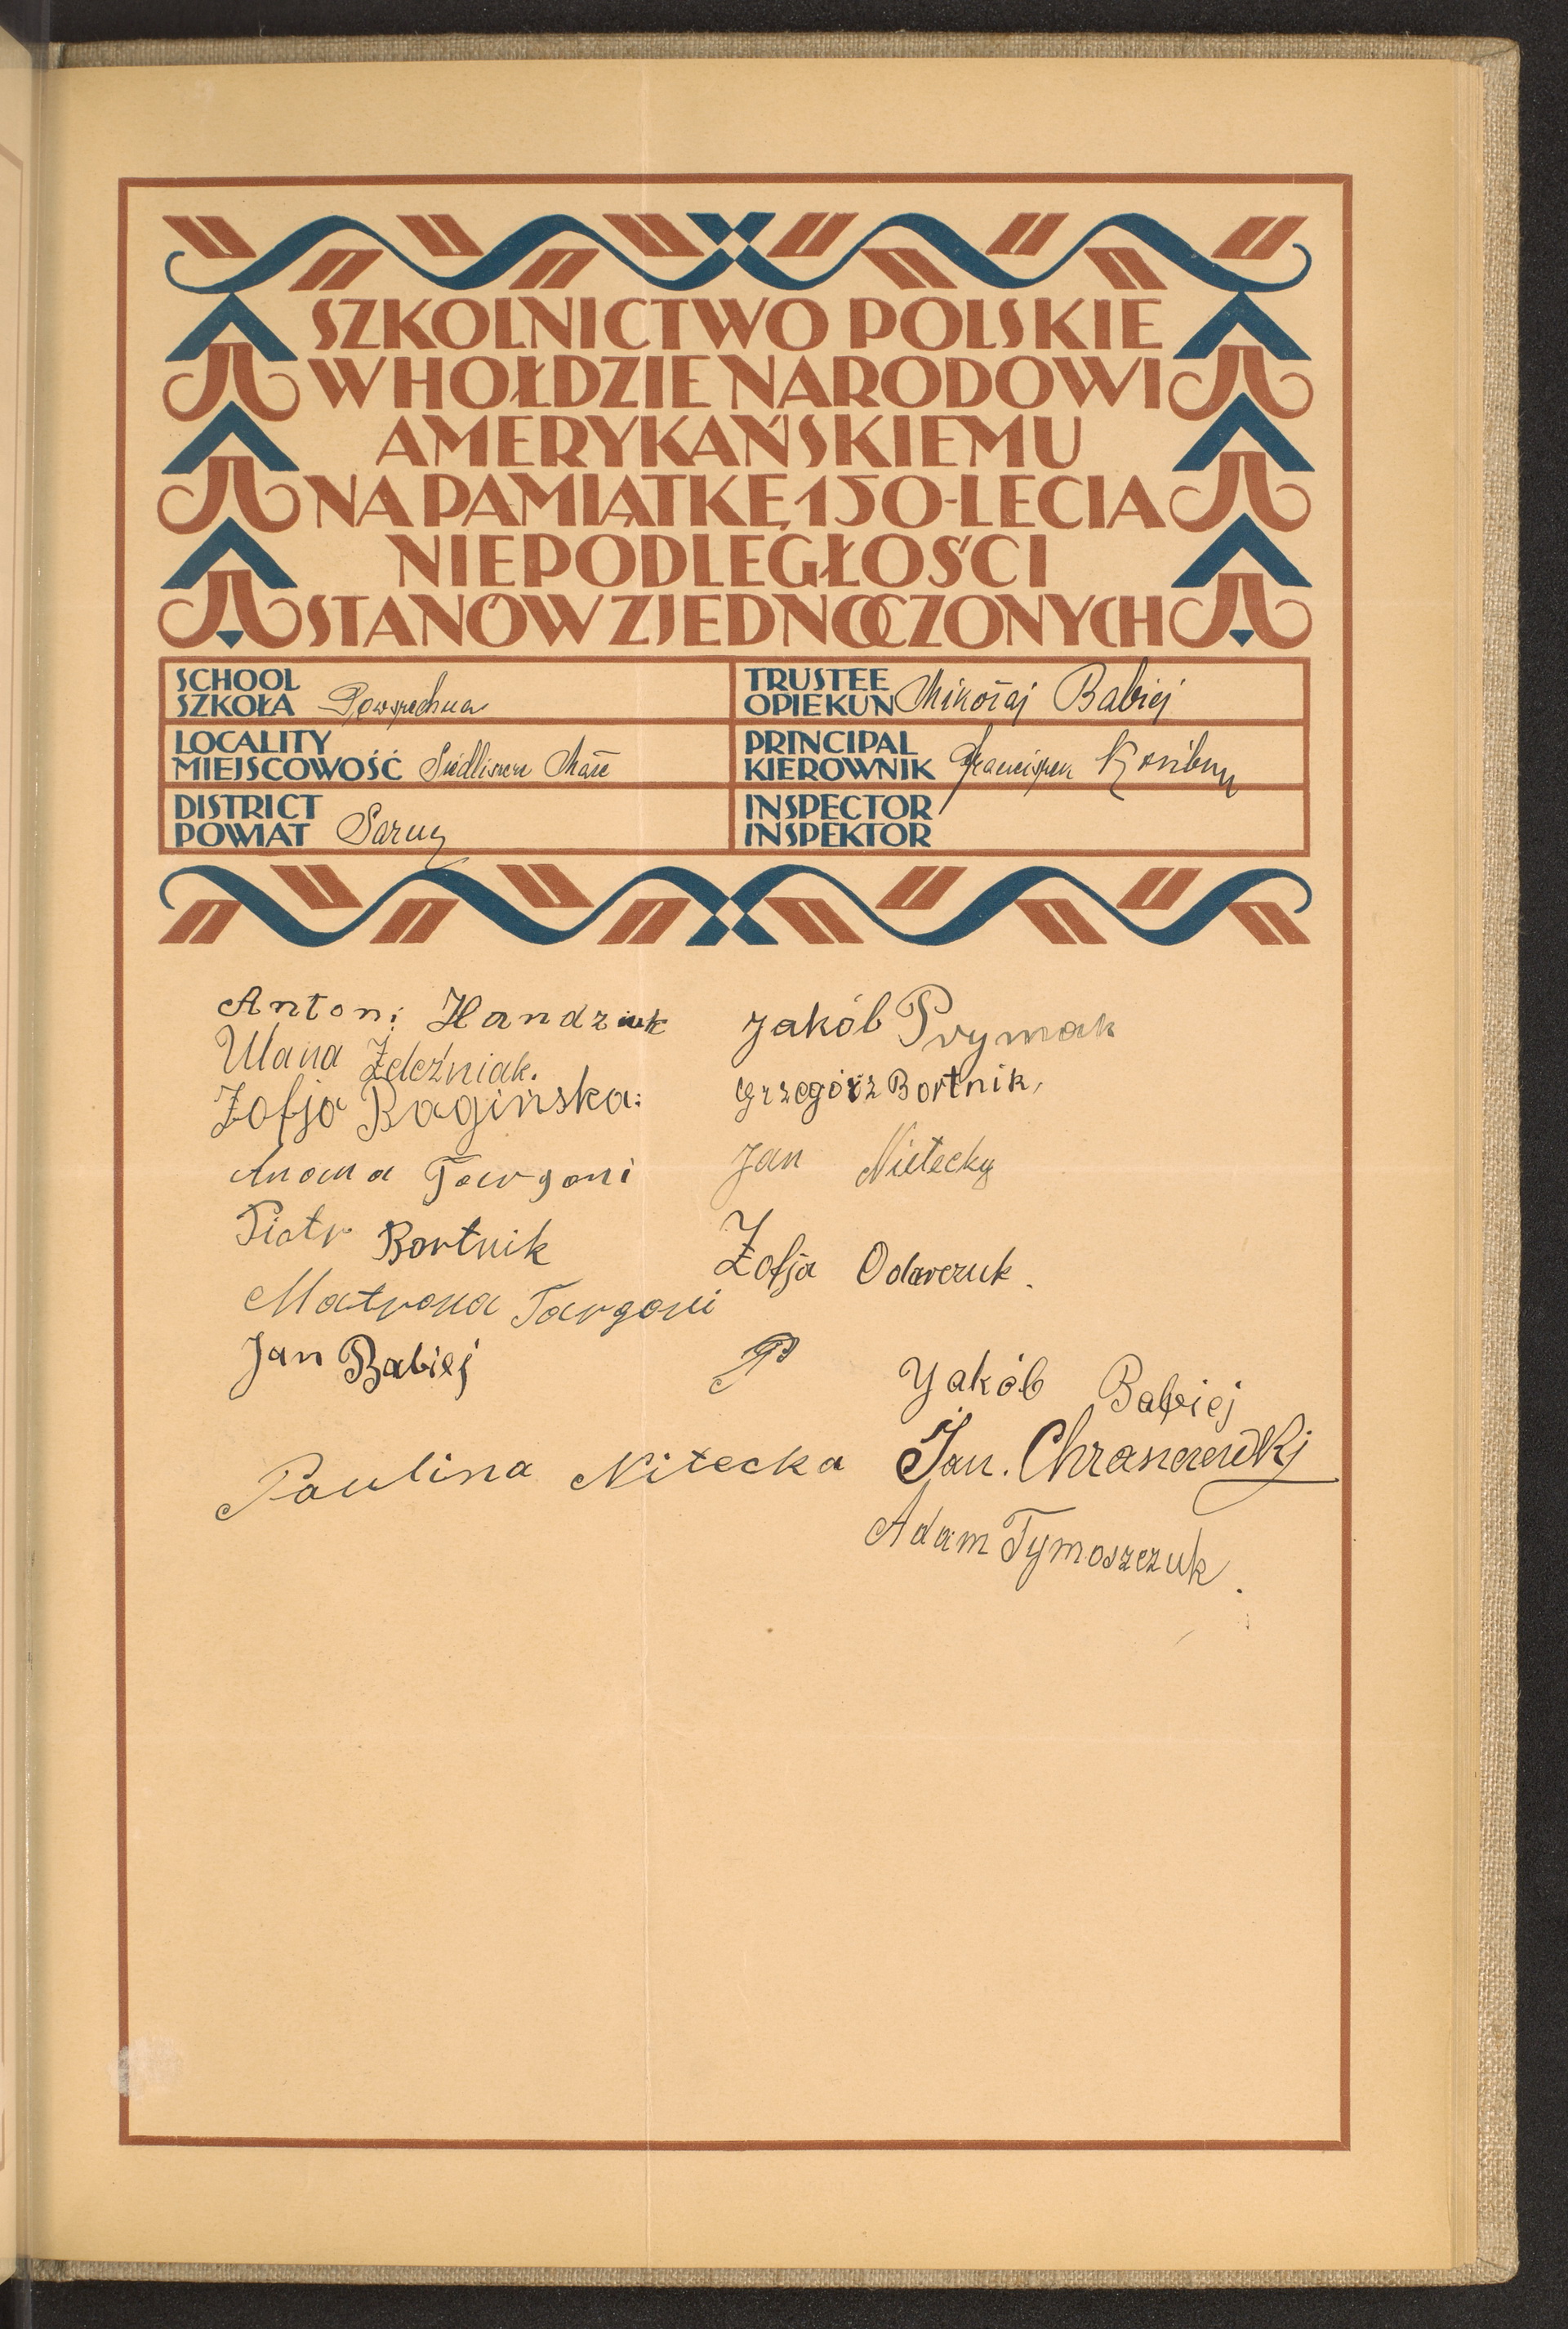 SZKOLNICTWO POLSKIE
W HOŁDZIE NARODOWI
AMERYKAŃSKIEMU
NA PAMIĄTKĘ 150-LECIA
NIEPODLEGŁOŚCI
STANÓW ZJEDNOCZONYCH
SCHOOL
SZKOŁA Powszechna
TRUSTEE
OPIEKUN Mikołaj Babiej
LOCALITY
MIEJSCOWOŚĆ Siedliszcze Małe
PRINCIPAL
KIEROWNIK Franciszek
DISTRICT
POWIAT Sarny
INSPECTOR
INSPEKTOR
Antoni Handziuk
Ulana Żeleźniak.
Zofja Bagińska:
Targoni
Piotr Bortnik
Matrona Targoni
Jan Babiej
Paulina Nitecka
Jakób Prymak
Grzegórz Bortnik,
Jan Nietecky
Zofja Odarczuk.
P
Jakób Babiej
Jan. Chraszczewskj
Adam Tymoszczuk.